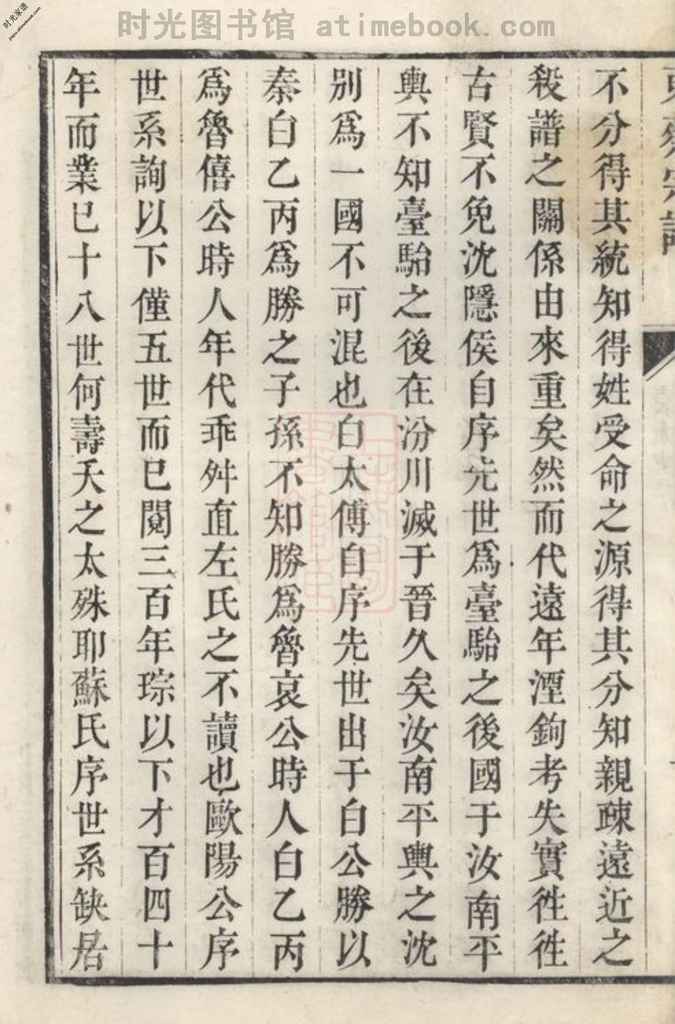 时光图书馆 atimebook.com
时光家谱
www.atimebook.com
不分得其統知得姓受命之源得其分知親疎遠近之
殺譜之關係由來重矣然而代遠年湮鉤考失實徃徃
古賢不免沈隱侯自序先世爲臺駘之後國于汝南平
輿不知臺駘之後在汾川滅于晉久矣汝南平輿之沈
別爲一國不可混也白太傅自序先世出于白公勝以
秦白乙丙爲勝之子孫不知勝爲魯哀公時人白乙丙
爲魯僖公時人年代乖舛直左氏之不讀也歐陽公序
世系詢以下僅五世而已閱三百年琮以下才百四十
年而業已十八世何壽夭之太殊耶蘇氏序世系缺居